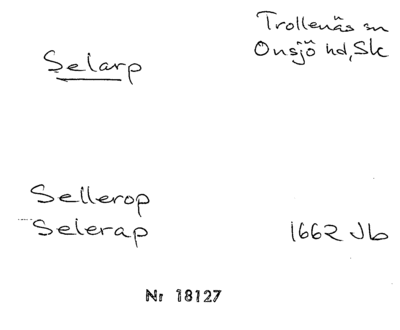 Trollenäs sn
Onsjö hd, Sk
Selarp
Sellerop
Selerap 1662 Jb
Nr 18127